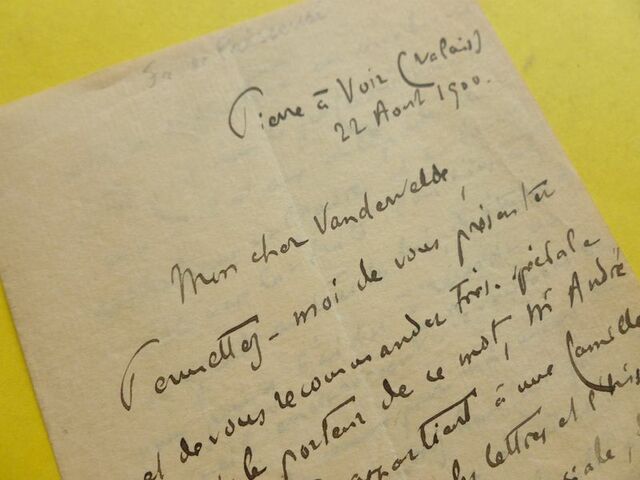 Pierre à Voir (Valais)
22 Aout 1900.
Mon cher Vandervelde,
Permettez-moi de vous présenter
et de vous recommander très-spéciale
le porteur de ce mot, Mr André
appartient à une famille
les lettres et l'his